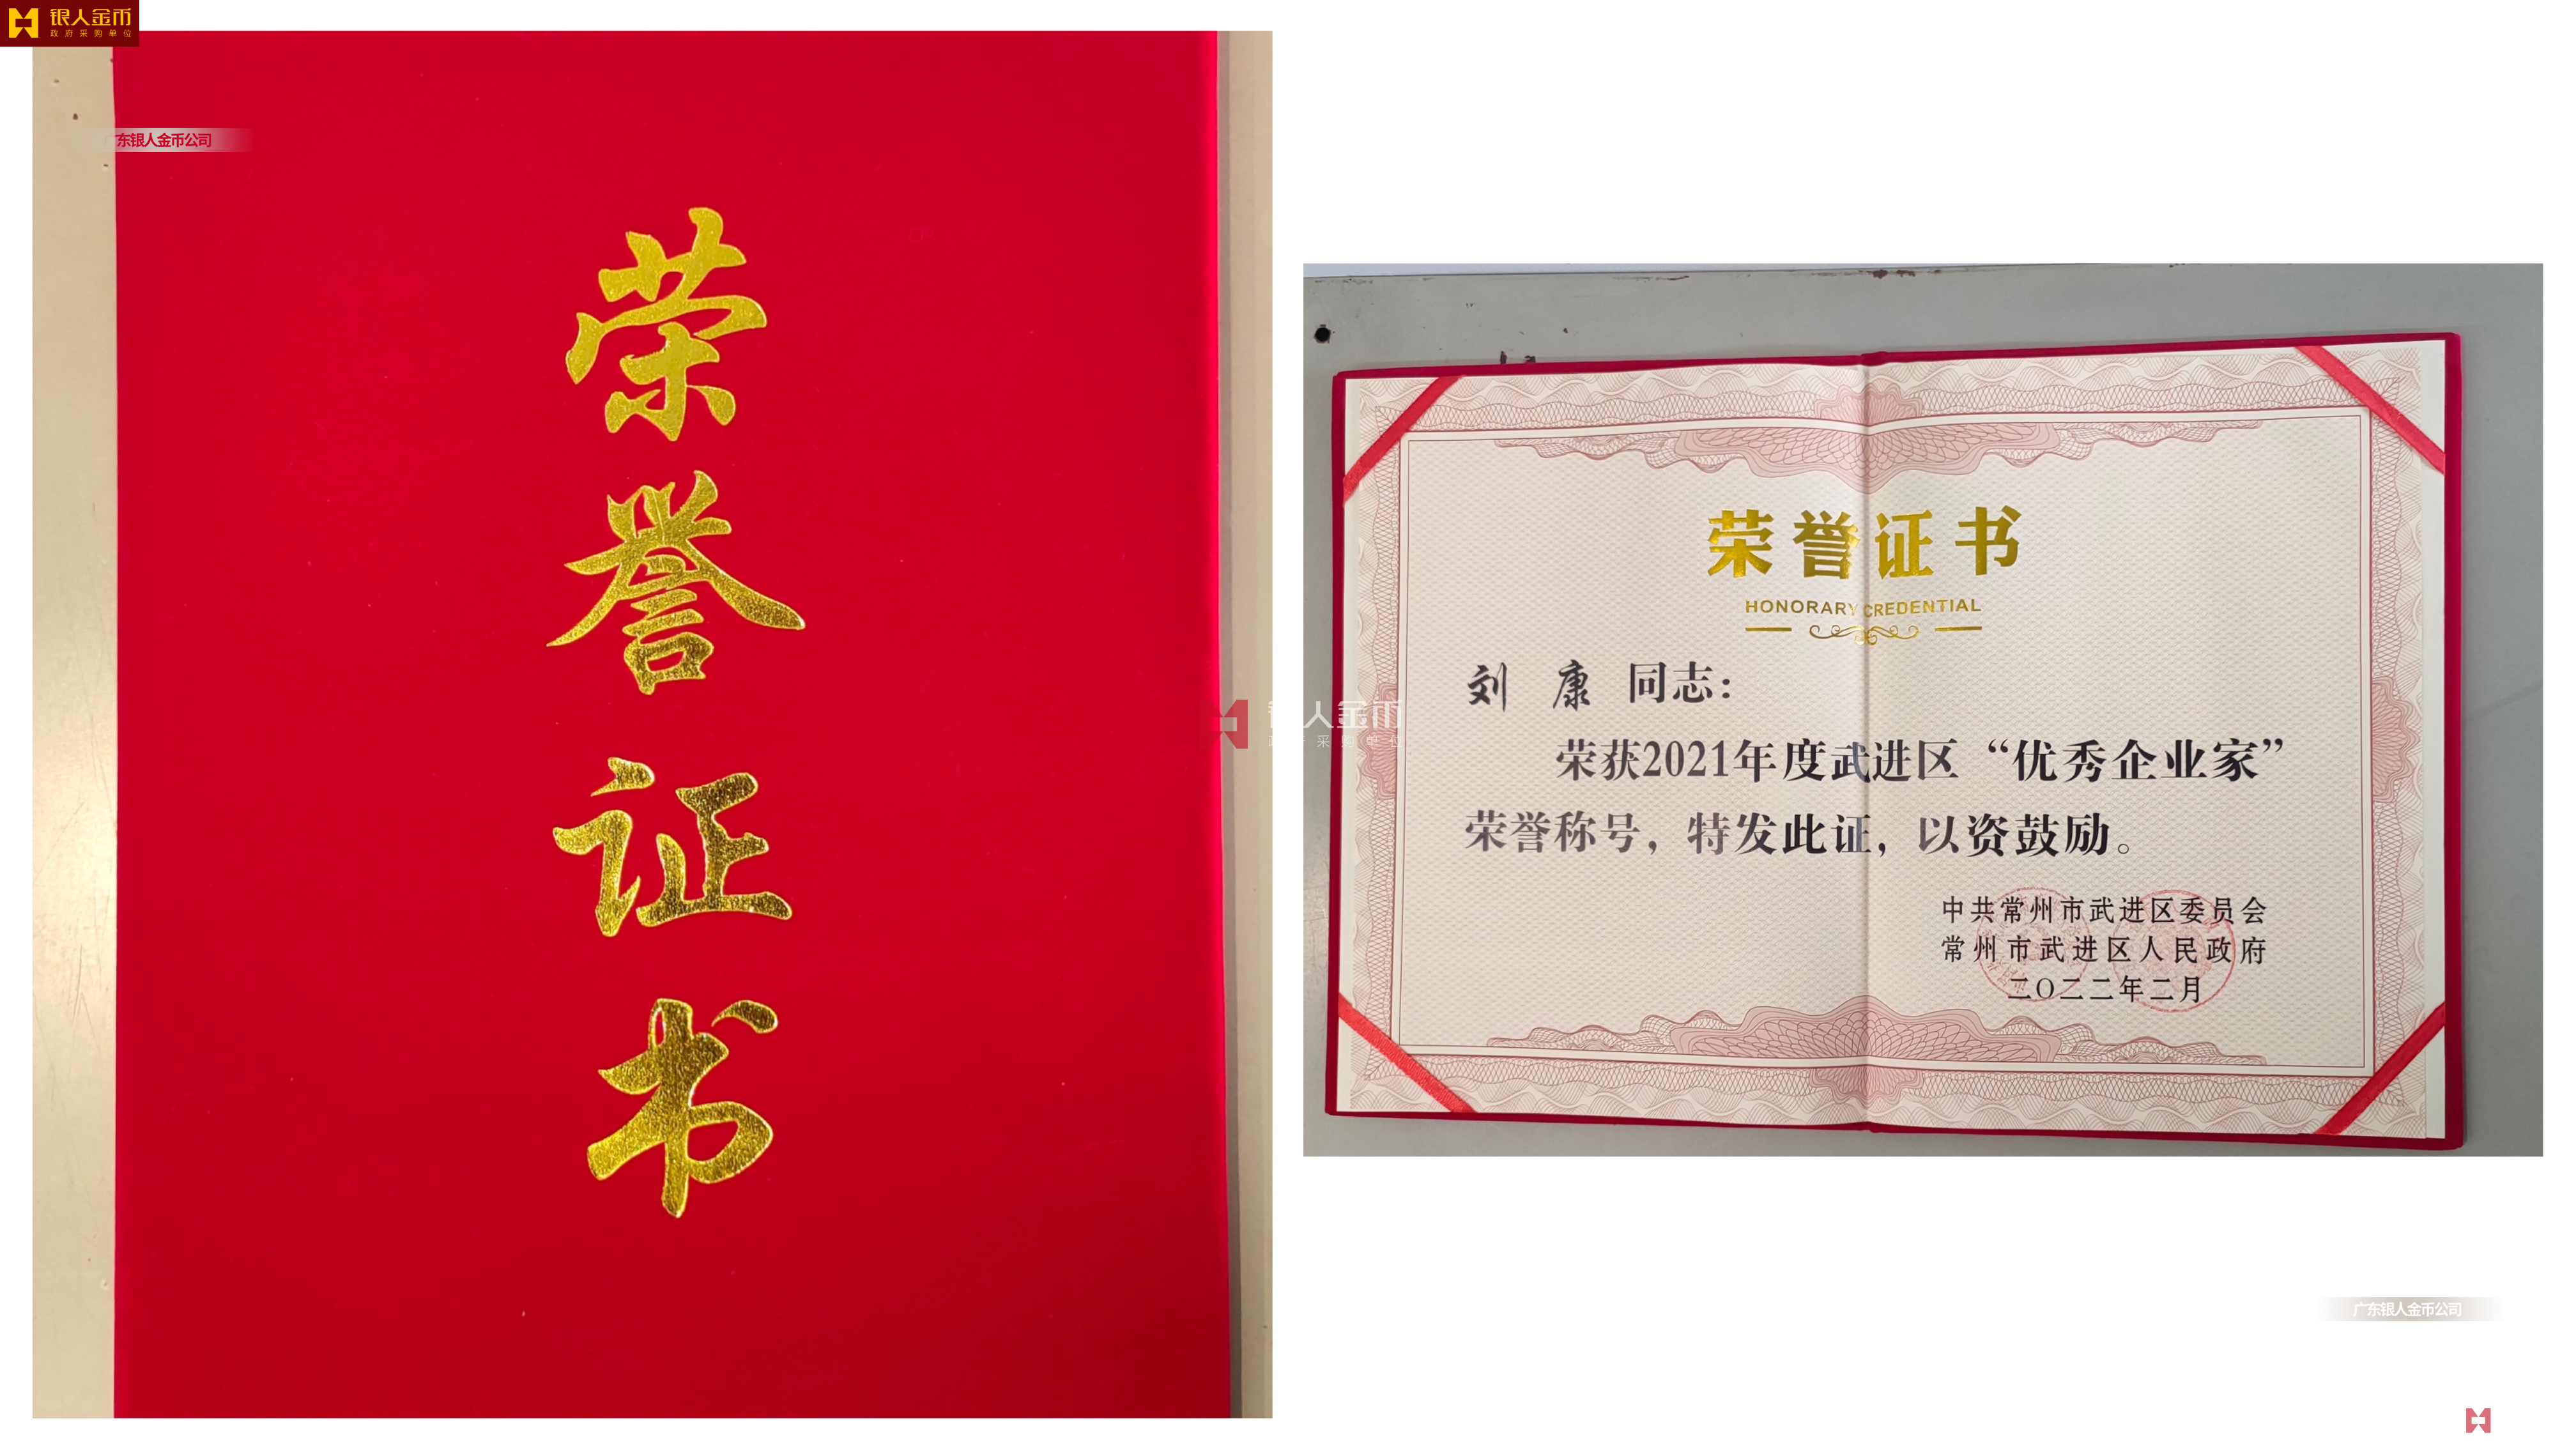 银人金币
政府采购单位
广东银人金币公司
荣
誉
证
书
银人金币
政府采购单位
荣誉证书
HONORARY CREDENTIAL
刘 康 同志：
荣获2021年度武进区“优秀企业家”
荣誉称号，特发此证，以资鼓励。
中共常州市武进区委员会
常州市武进区人民政府
二〇二二年二月
广东银人金币公司